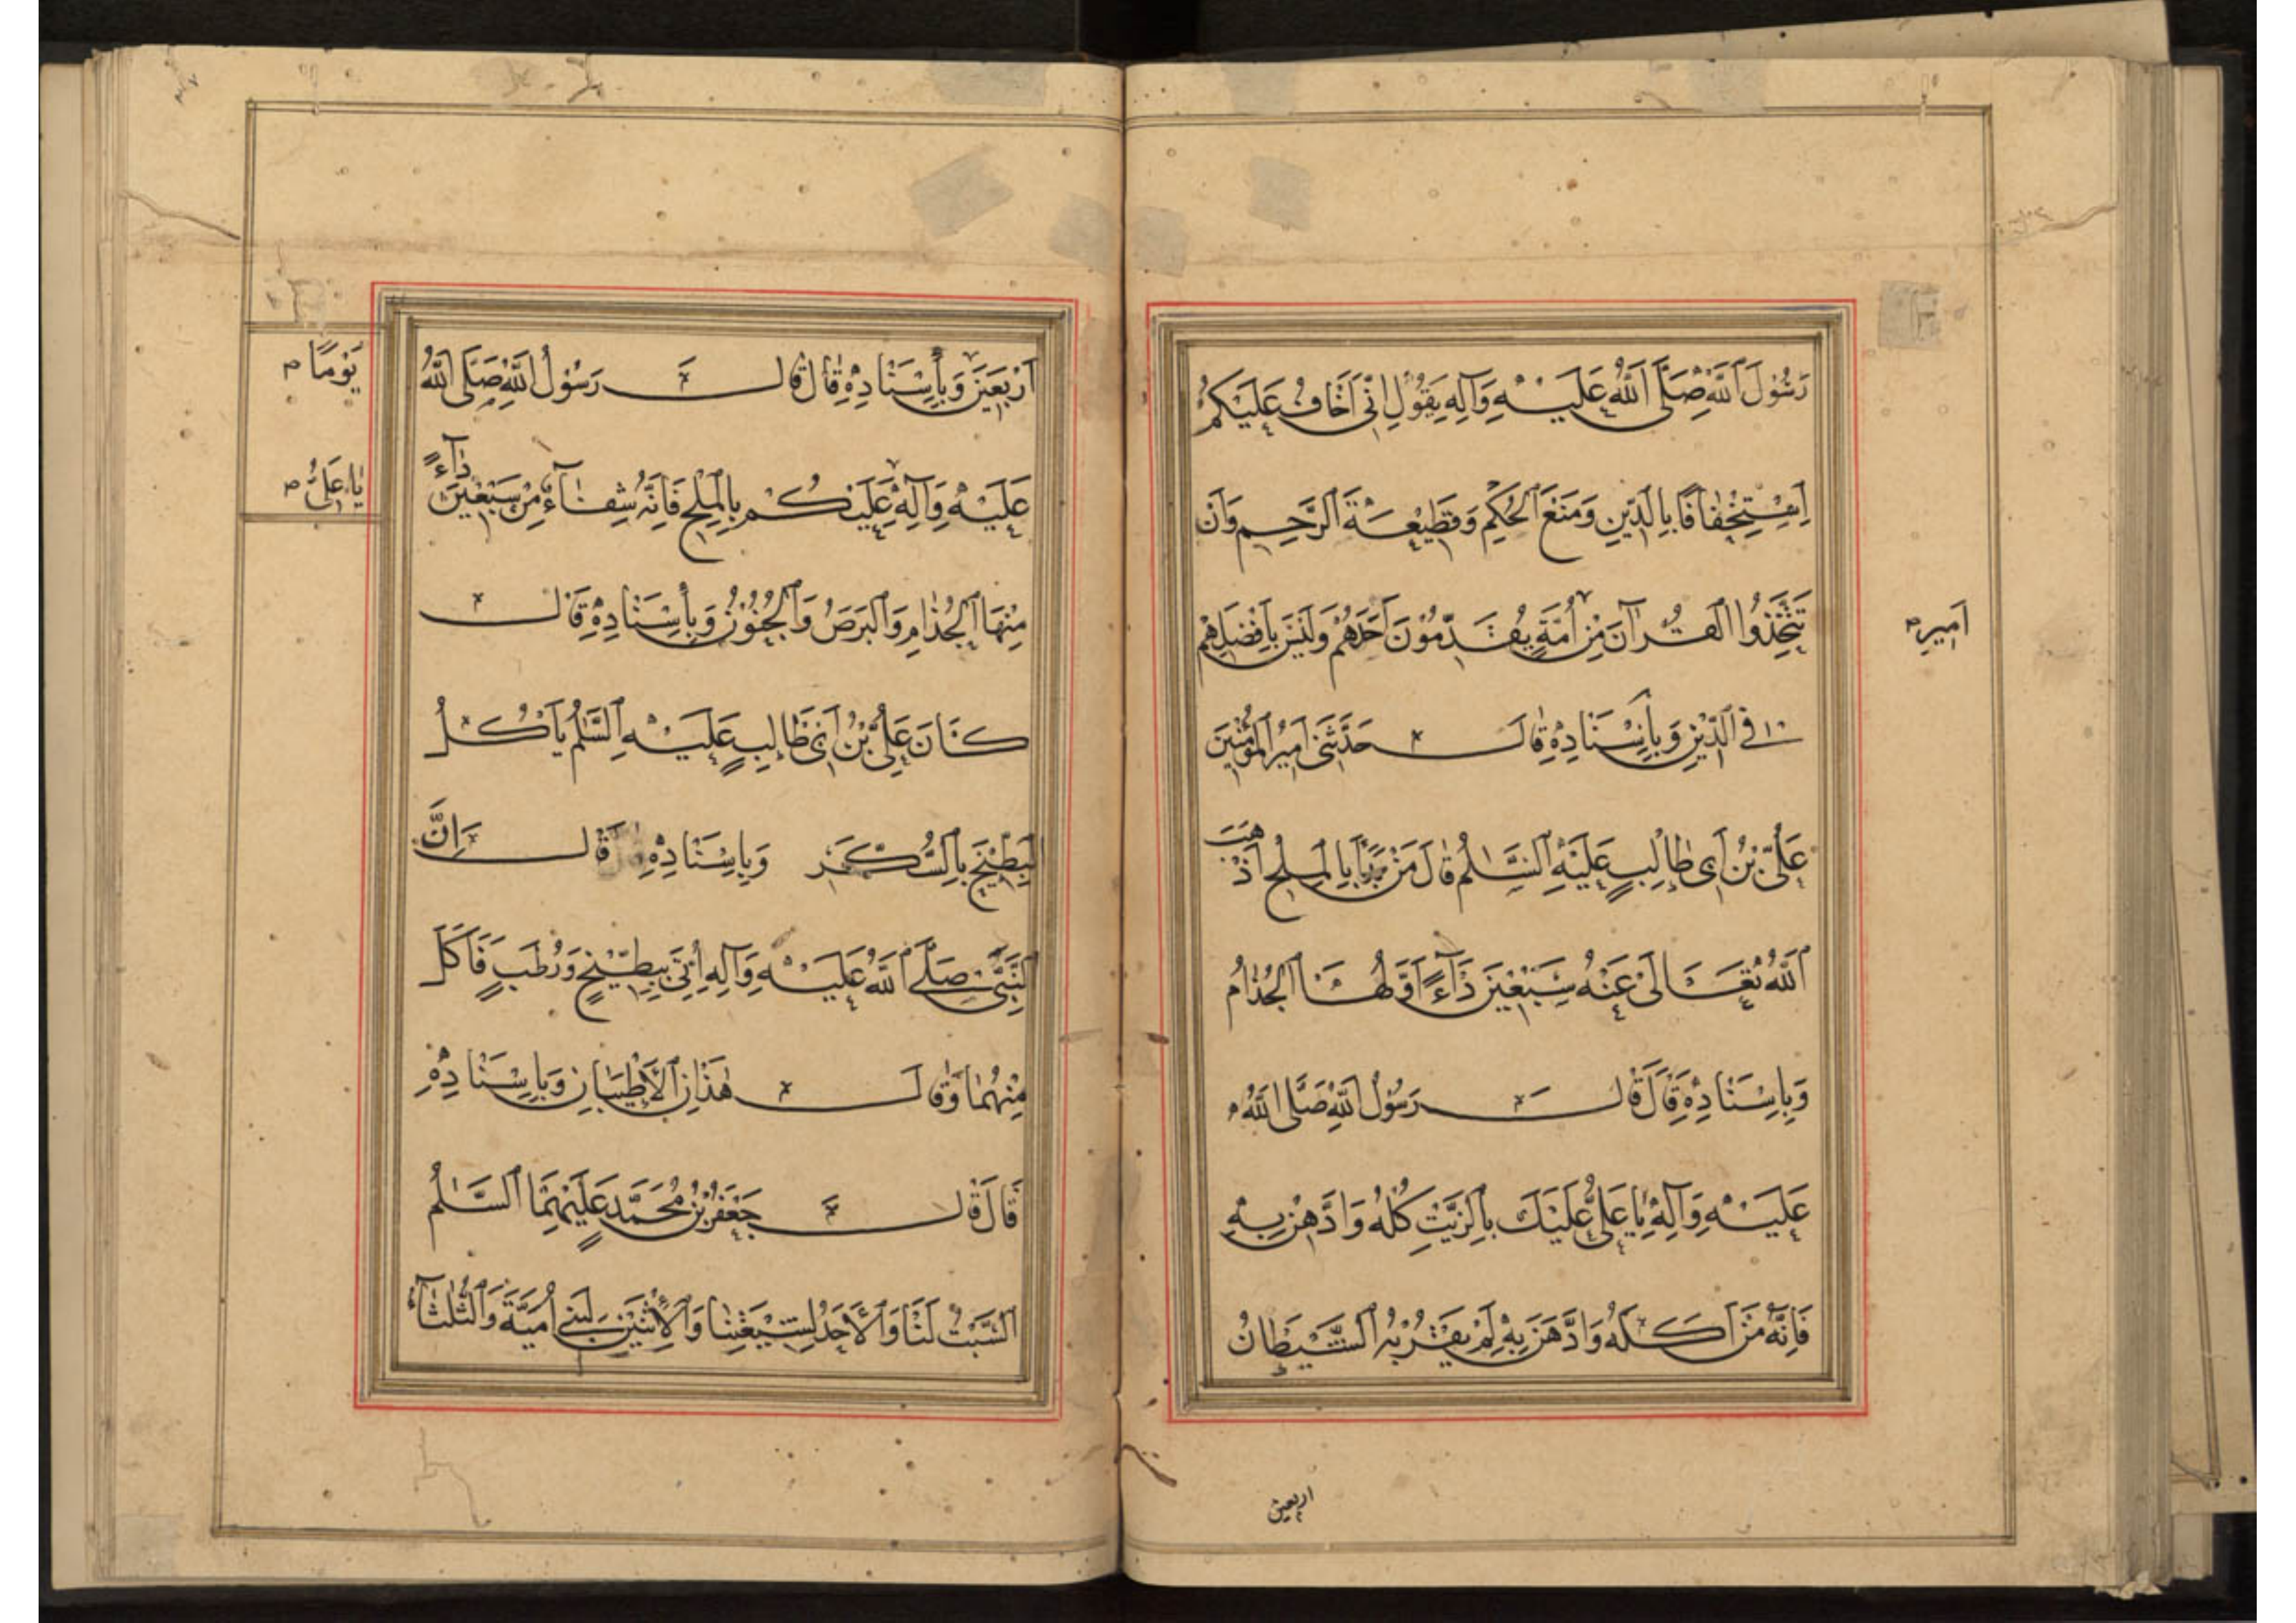 رَسُولَ اللَّهِ صَلَّى اللَّهُ عَلَيْهِ وَآلِهِ يَقُولُ إِنِّي أَخَافُ عَلَيْكُمْ
اِسْتِخْفَافًا بِالدِّينِ وَمَنْعَ الْحُكْمِ وَقَطِيعَةَ الرَّحِمِ وَأَنْ
تَتَّخِذُوا الْقُرْآنَ مِنْ أُمَّةٍ يُقَدِّمُونَ أَحَدَهُمْ وَلَيْسَ بِأَفْضَلِهِمْ
أَمِيرِ
فِي الدِّينِ وَبِإِسْنَادِهِ قَالَ حَدَّثَنِي أَمِيرُ الْمُؤْمِنِينَ
عَلِيُّ بْنُ أَبِي طَالِبٍ عَلَيْهِ السَّلَامُ قَالَ مَنْ بَدَأَ بِالْمِلْحِ أَذْهَبَ
اللَّهُ تَعَالَى عَنْهُ سَبْعِينَ دَآءً أَوَّلُهَا الْجُذَامُ
وَبِإِسْنَادِهِ قَالَ قَالَ رَسُولُ اللَّهِ صَلَّى اللَّهُ
عَلَيْهِ وَآلِهِ يَا عَلِيُّ عَلَيْكَ بِالزَّيْتِ كُلْهُ وَادَّهِنْ بِهِ
فَإِنَّهُ مَنْ أَكَلَهُ وَادَّهَنَ بِهِ لَمْ يَقْرَبْهُ الشَّيْطَانُ
اربعين
أَرْبَعِينَ وَبِإِسْنَادِهِ قَالَ قَالَ رَسُولُ اللَّهِ صَلَّى اللَّهُ
يَوْمًا
عَلَيْهِ وَآلِهِ عَلَيْكُمْ بِالْمِلْحِ فَإِنَّهُ شِفَآءٌ مِنْ سَبْعِينَ دَآءً
يَا عَلِيُّ
مِنْهَا الْجُذَامُ وَالْبَرَصُ وَالْجُنُونُ وَبِإِسْنَادِهِ قَالَ
كَانَ عَلِيُّ بْنُ أَبِي طَالِبٍ عَلَيْهِ السَّلَامُ يَأْكُلُ
الْبِطِّيخَ بِالسُّكَّرِ وَبِإِسْنَادِهِ قَالَ إِنَّ
النَّبِيَّ صَلَّى اللَّهُ عَلَيْهِ وَآلِهِ أُتِيَ بِبِطِّيخٍ وَرُطَبٍ فَأَكَلَ
مِنْهُمَا وَقَالَ هَذَانِ الْأَطْيَبَانِ وَبِإِسْنَادِهِ
قَالَ قَالَ جَعْفَرُ بْنُ مُحَمَّدٍ عَلَيْهِمَا السَّلَامُ
السَّبْتُ لَنَا وَالْأَحَدُ لِشِيعَتِنَا وَالْإِثْنَيْنِ لِبَنِي أُمَيَّةَ وَالثُّلَثَآءُ